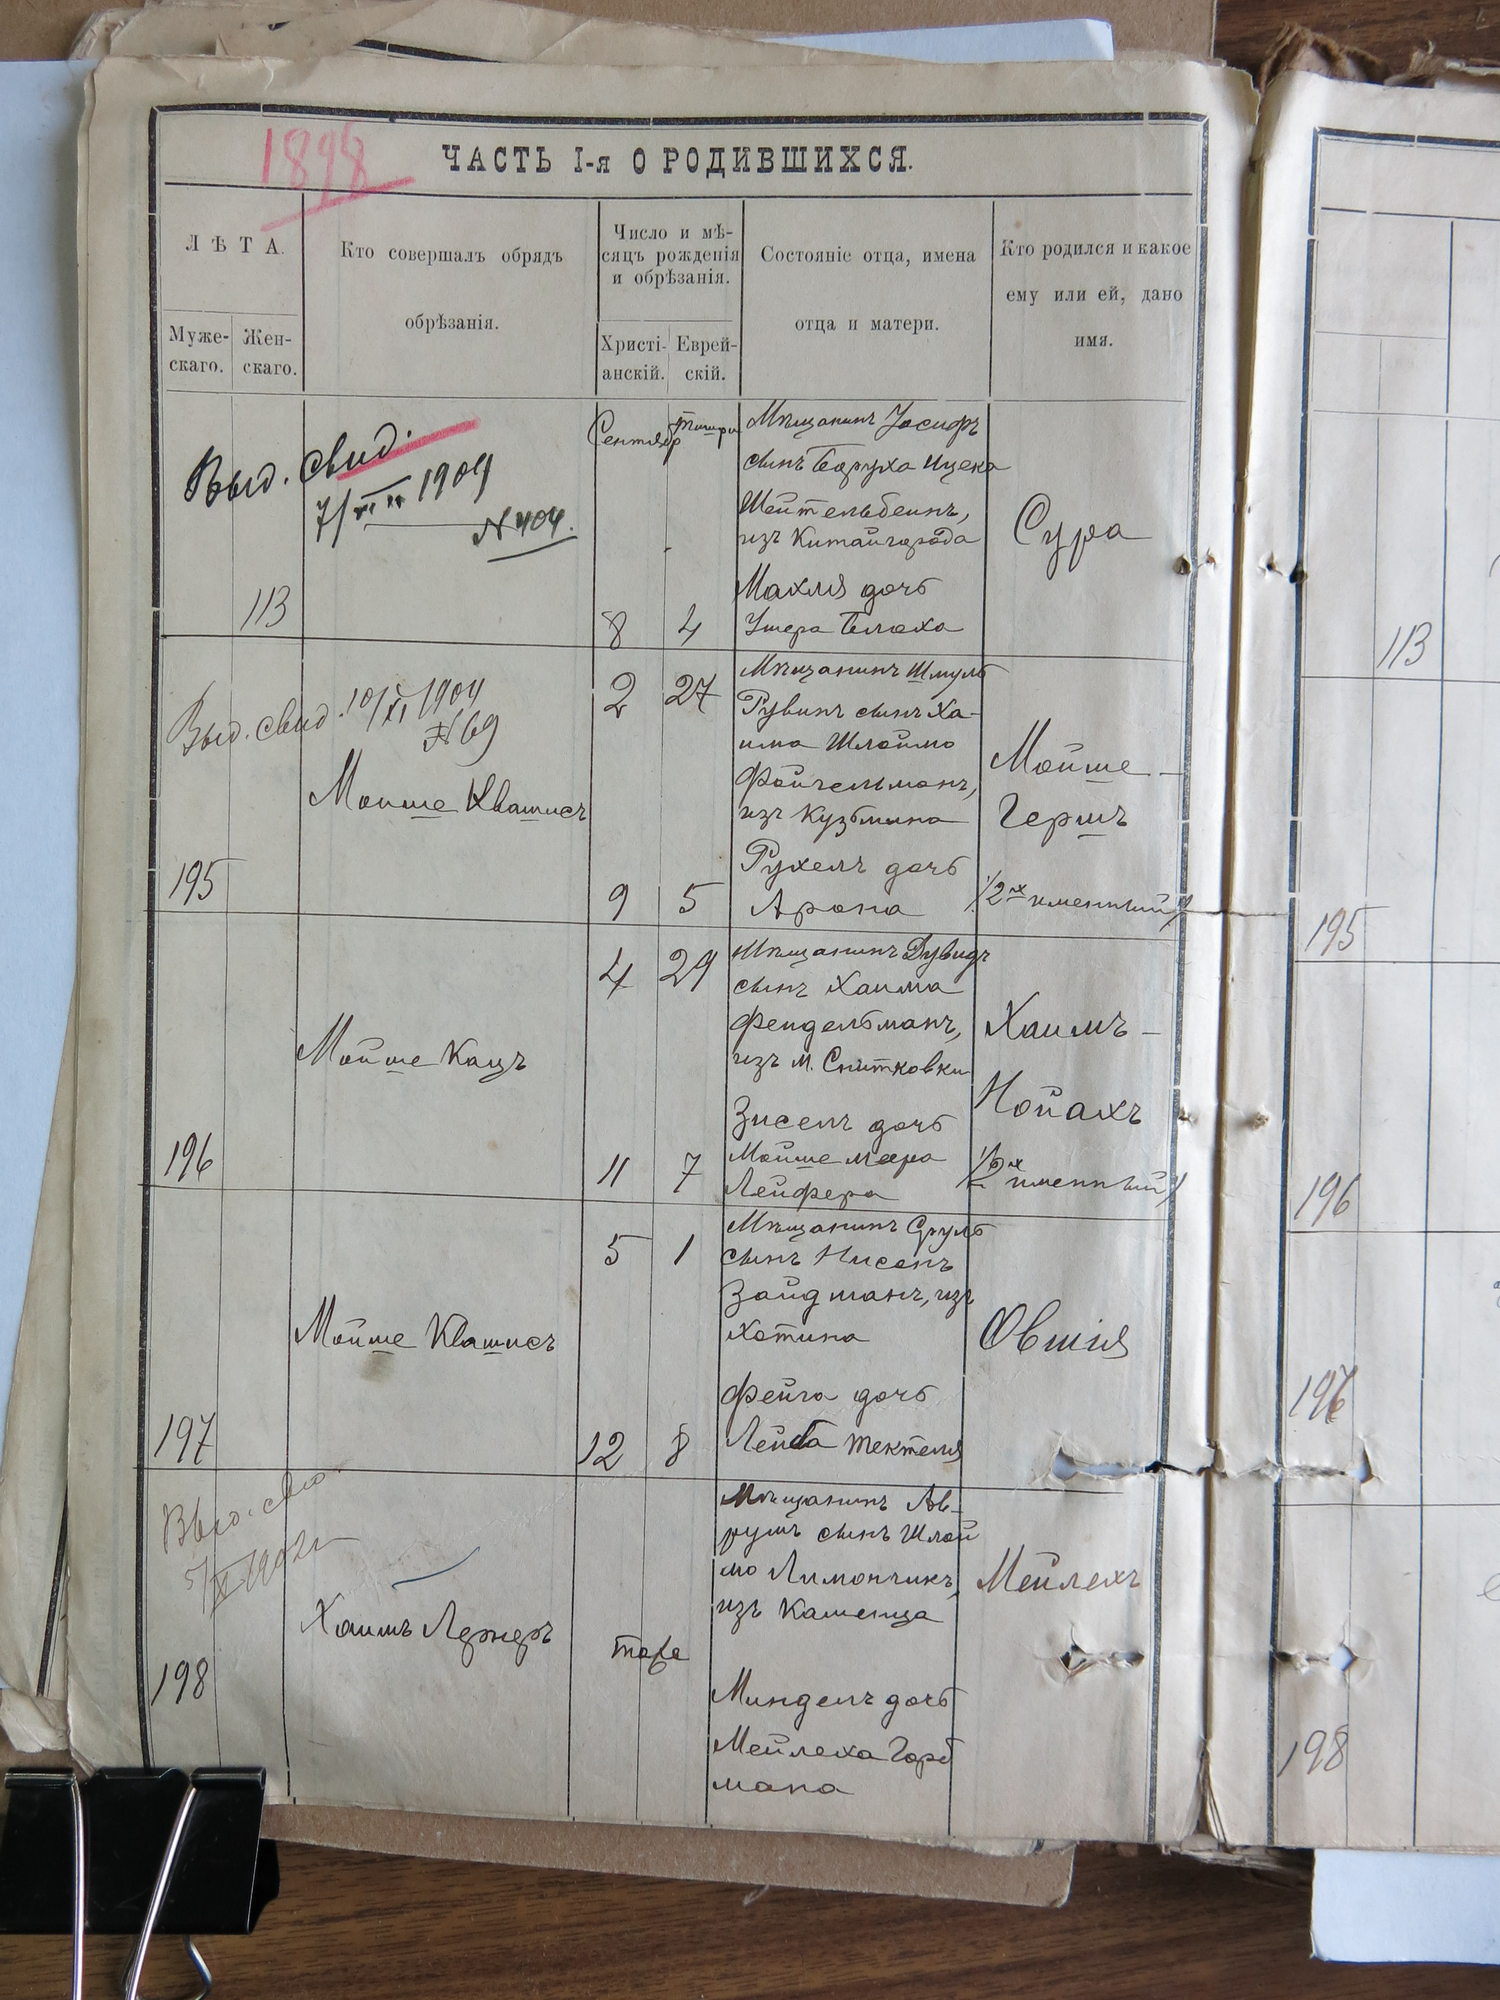 1898
ЧАСТЬ I-я О РОДИВШИХСЯ.
ЛѢТА.
Муже-
скаго.
Жен-
скаго.
Кто совершалъ обрядъ
обрѣзанія.
Число и мѣ-
сяцъ рожденія
и обрѣзанія.
Христі-
анскій.
Еврей-
скій.
Состояніе отца, имена
отца и матери.
Кто родился и какое
ему или ей, дано
имя.
Выд. свид.
7/XI 1904
№ 404.
113
Сентябр
Тишри
8
4
Мѣщанинъ Іосифъ
сынъ Боруха Ицека
Шейтельбеинъ,
изъ Китайгорода
Махля дочь
Ушера
Сура
Выд. свид. 10/XI 1904
№ 69
195
Мойше Квашисъ
2
27
9
5
Мѣщанинъ Шмуль
Рувинъ сынъ Ха-
има Шлоймо
Файчельманъ,
изъ Кузьмина
Рухель дочь
Арона
Мойше-
Гершъ
/2х именный/
196
Мойше Кацъ
4
29
11
7
Мѣщанинъ Дувидъ
сынъ Хаима
Фендельманъ,
изъ м. Снитковки
Зисель дочь
Мойше Меера
Лейфера
Хаимъ-
Нойахъ
/2х именный/
197
Мойше Квашисъ
5
1
12
8
Мѣщанинъ Сруль
сынъ Нисонъ
Зайдманъ, изъ
Хотина
Фейга дочь
Лейба Тектеля
Овшія
Выд. сви
5/X 1902
198
Хаимъ Лернеръ
тоже
Мѣщанинъ Ав-
румъ сынъ Шлой
мо Лимончикъ,
изъ Каменца
Миндель дочь
Мейлеха Горб
мана
Мейлехъ
113
195
196
197
198